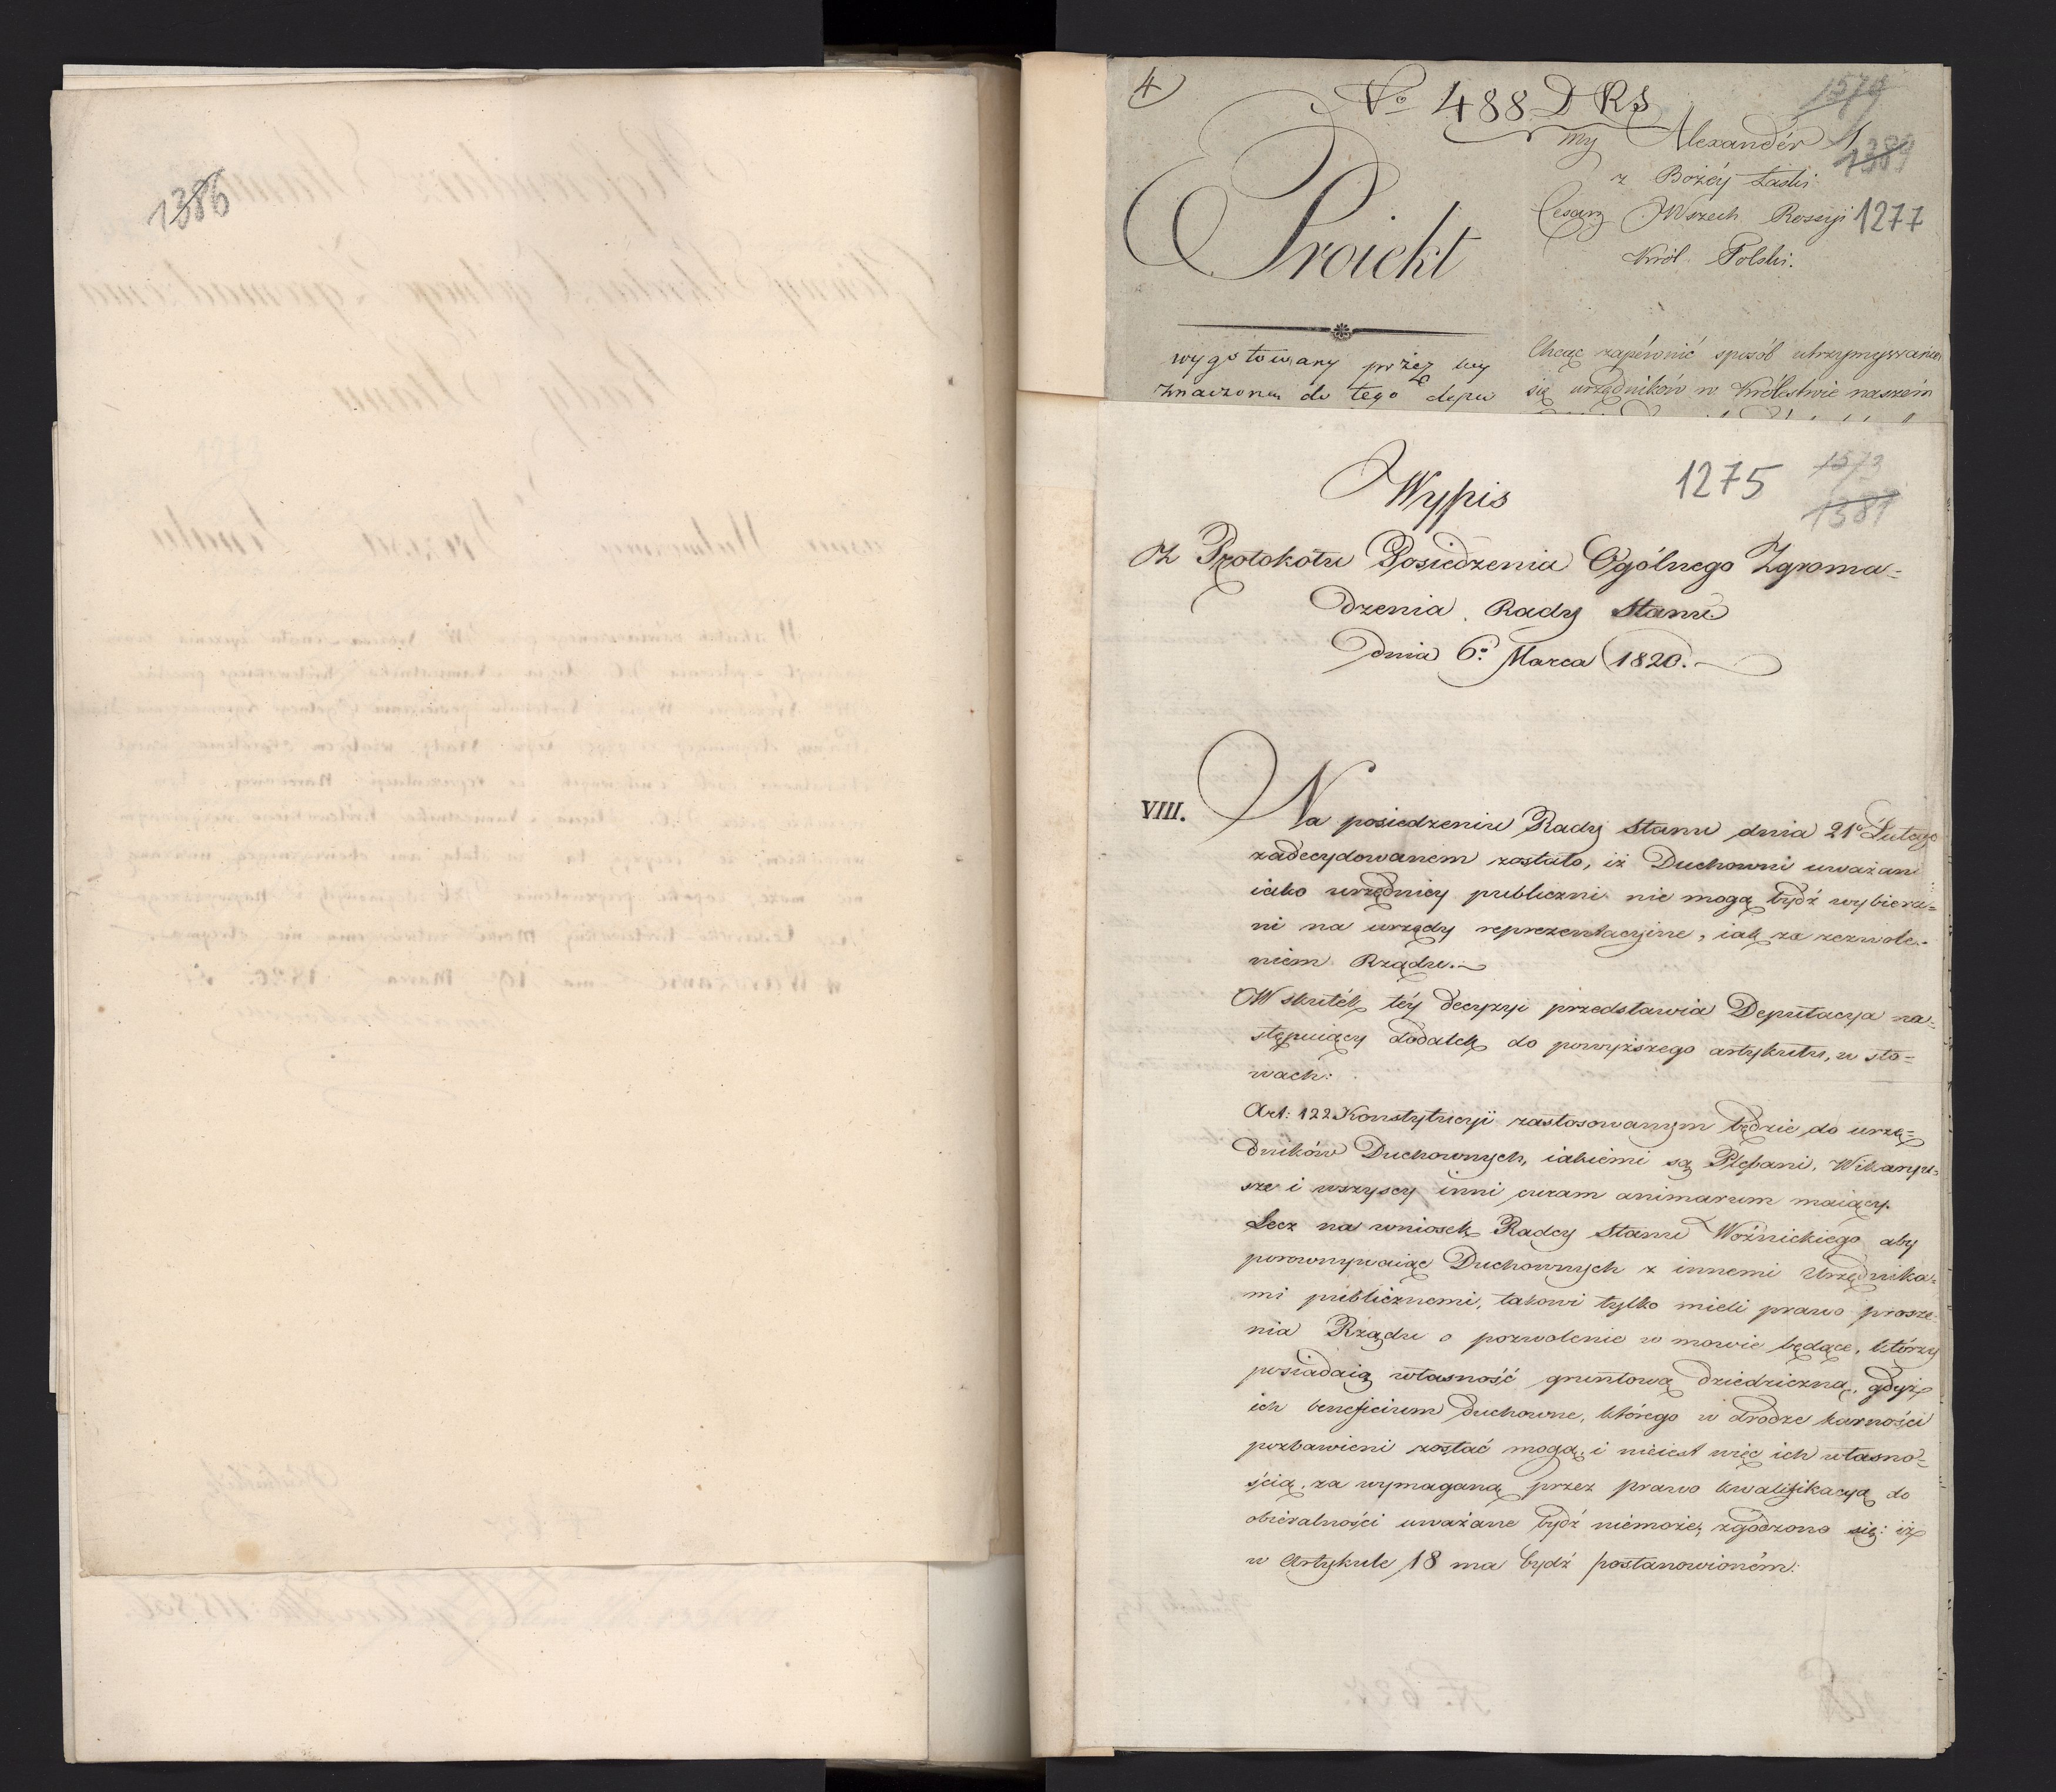 1386
4
No 488 D R S
1579
My Alexander I
1389
z Bożéy Łaski
Cesarz Wszech Rossyi
1277
Król Polski.
Proiekt
wygotowany przez wy
znaczoną do tego depu
Chcąc zapéwnić sposób utrzymywania
się urzędników w Królestwie naszém
Wypis
1275
1573
1387
Z Protokółu Posiedzenia Ogólnego Zgroma=
dzenia Rady Stanu
Dnia 6o. Marca 1820.
VIII.
Na posiedzeniu Rady Stanu dnia 21o Lutego
zadecydowanem zostało, iż Duchowni uważani
iako urzędnicy publiczni nie mogą bydź wybiera=
ni na urzędy reprezentacyjne, iak za zezwole=
niem Rządu.
W skutek téy decyzyi przedstawia Deputacya na=
stępuiący dodatek do powyższego artykułu, w sło=
wach:
Art: 122 Konstytucyi zastosowanym będzie do urzę=
dników Duchownych, iakiémi są Plebani, Wikaryu=
sze i wszyscy inni curam animarum maiący.
Lecz na wniosek Radcy Stanu Woźnickiego aby
porownywaiąc Duchownych z innemi Urzędnika=
mi publicznemi, takowi tylko mieli prawo prosze=
nia Rządu o pozwolenie w mowie będące, którzy
posiadaią własność gruntową dziedziczną, gdyż
ich beneficium duchowne, którego w drodze karności
pozbawieni zostać mogą, i nieiest więc ich własno=
ścią, za wymaganą przez prawo kwalifikacyą do
obiéralności uważane bydź niemoże, zgodzono się: iż
w Artykule 18 ma bydź postanowioném: